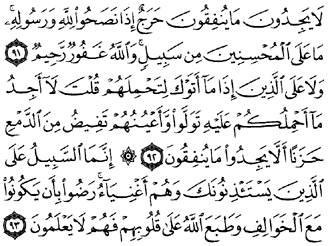 لَا يَجِدُونَ مَا يُنفِقُونَ حَرَجٌ إِذَا نَصَحُوا۟ لِلَّهِ وَرَسُولِهِۦ ۚ
مَا عَلَى ٱلْمُحْسِنِينَ مِن سَبِيلٍ ۚ وَٱللَّهُ غَفُورٌ رَّحِيمٌ ٩١
وَلَا عَلَى ٱلَّذِينَ إِذَا مَآ أَتَوْكَ لِتَحْمِلَهُمْ قُلْتَ لَآ أَجِدُ
مَآ أَحْمِلُكُمْ عَلَيْهِ تَوَلَّوا۟ وَّأَعْيُنُهُمْ تَفِيضُ مِنَ ٱلدَّمْعِ
حَزَنًا أَلَّا يَجِدُوا۟ مَا يُنفِقُونَ ٩٢ ۞ إِنَّمَا ٱلسَّبِيلُ عَلَى
ٱلَّذِينَ يَسْتَـْٔذِنُونَكَ وَهُمْ أَغْنِيَآءُ ۚ رَضُوا۟ بِأَن يَكُونُوا۟
مَعَ ٱلْخَوَالِفِ وَطَبَعَ ٱللَّهُ عَلَىٰ قُلُوبِهِمْ فَهُمْ لَا يَعْلَمُونَ ٩٣